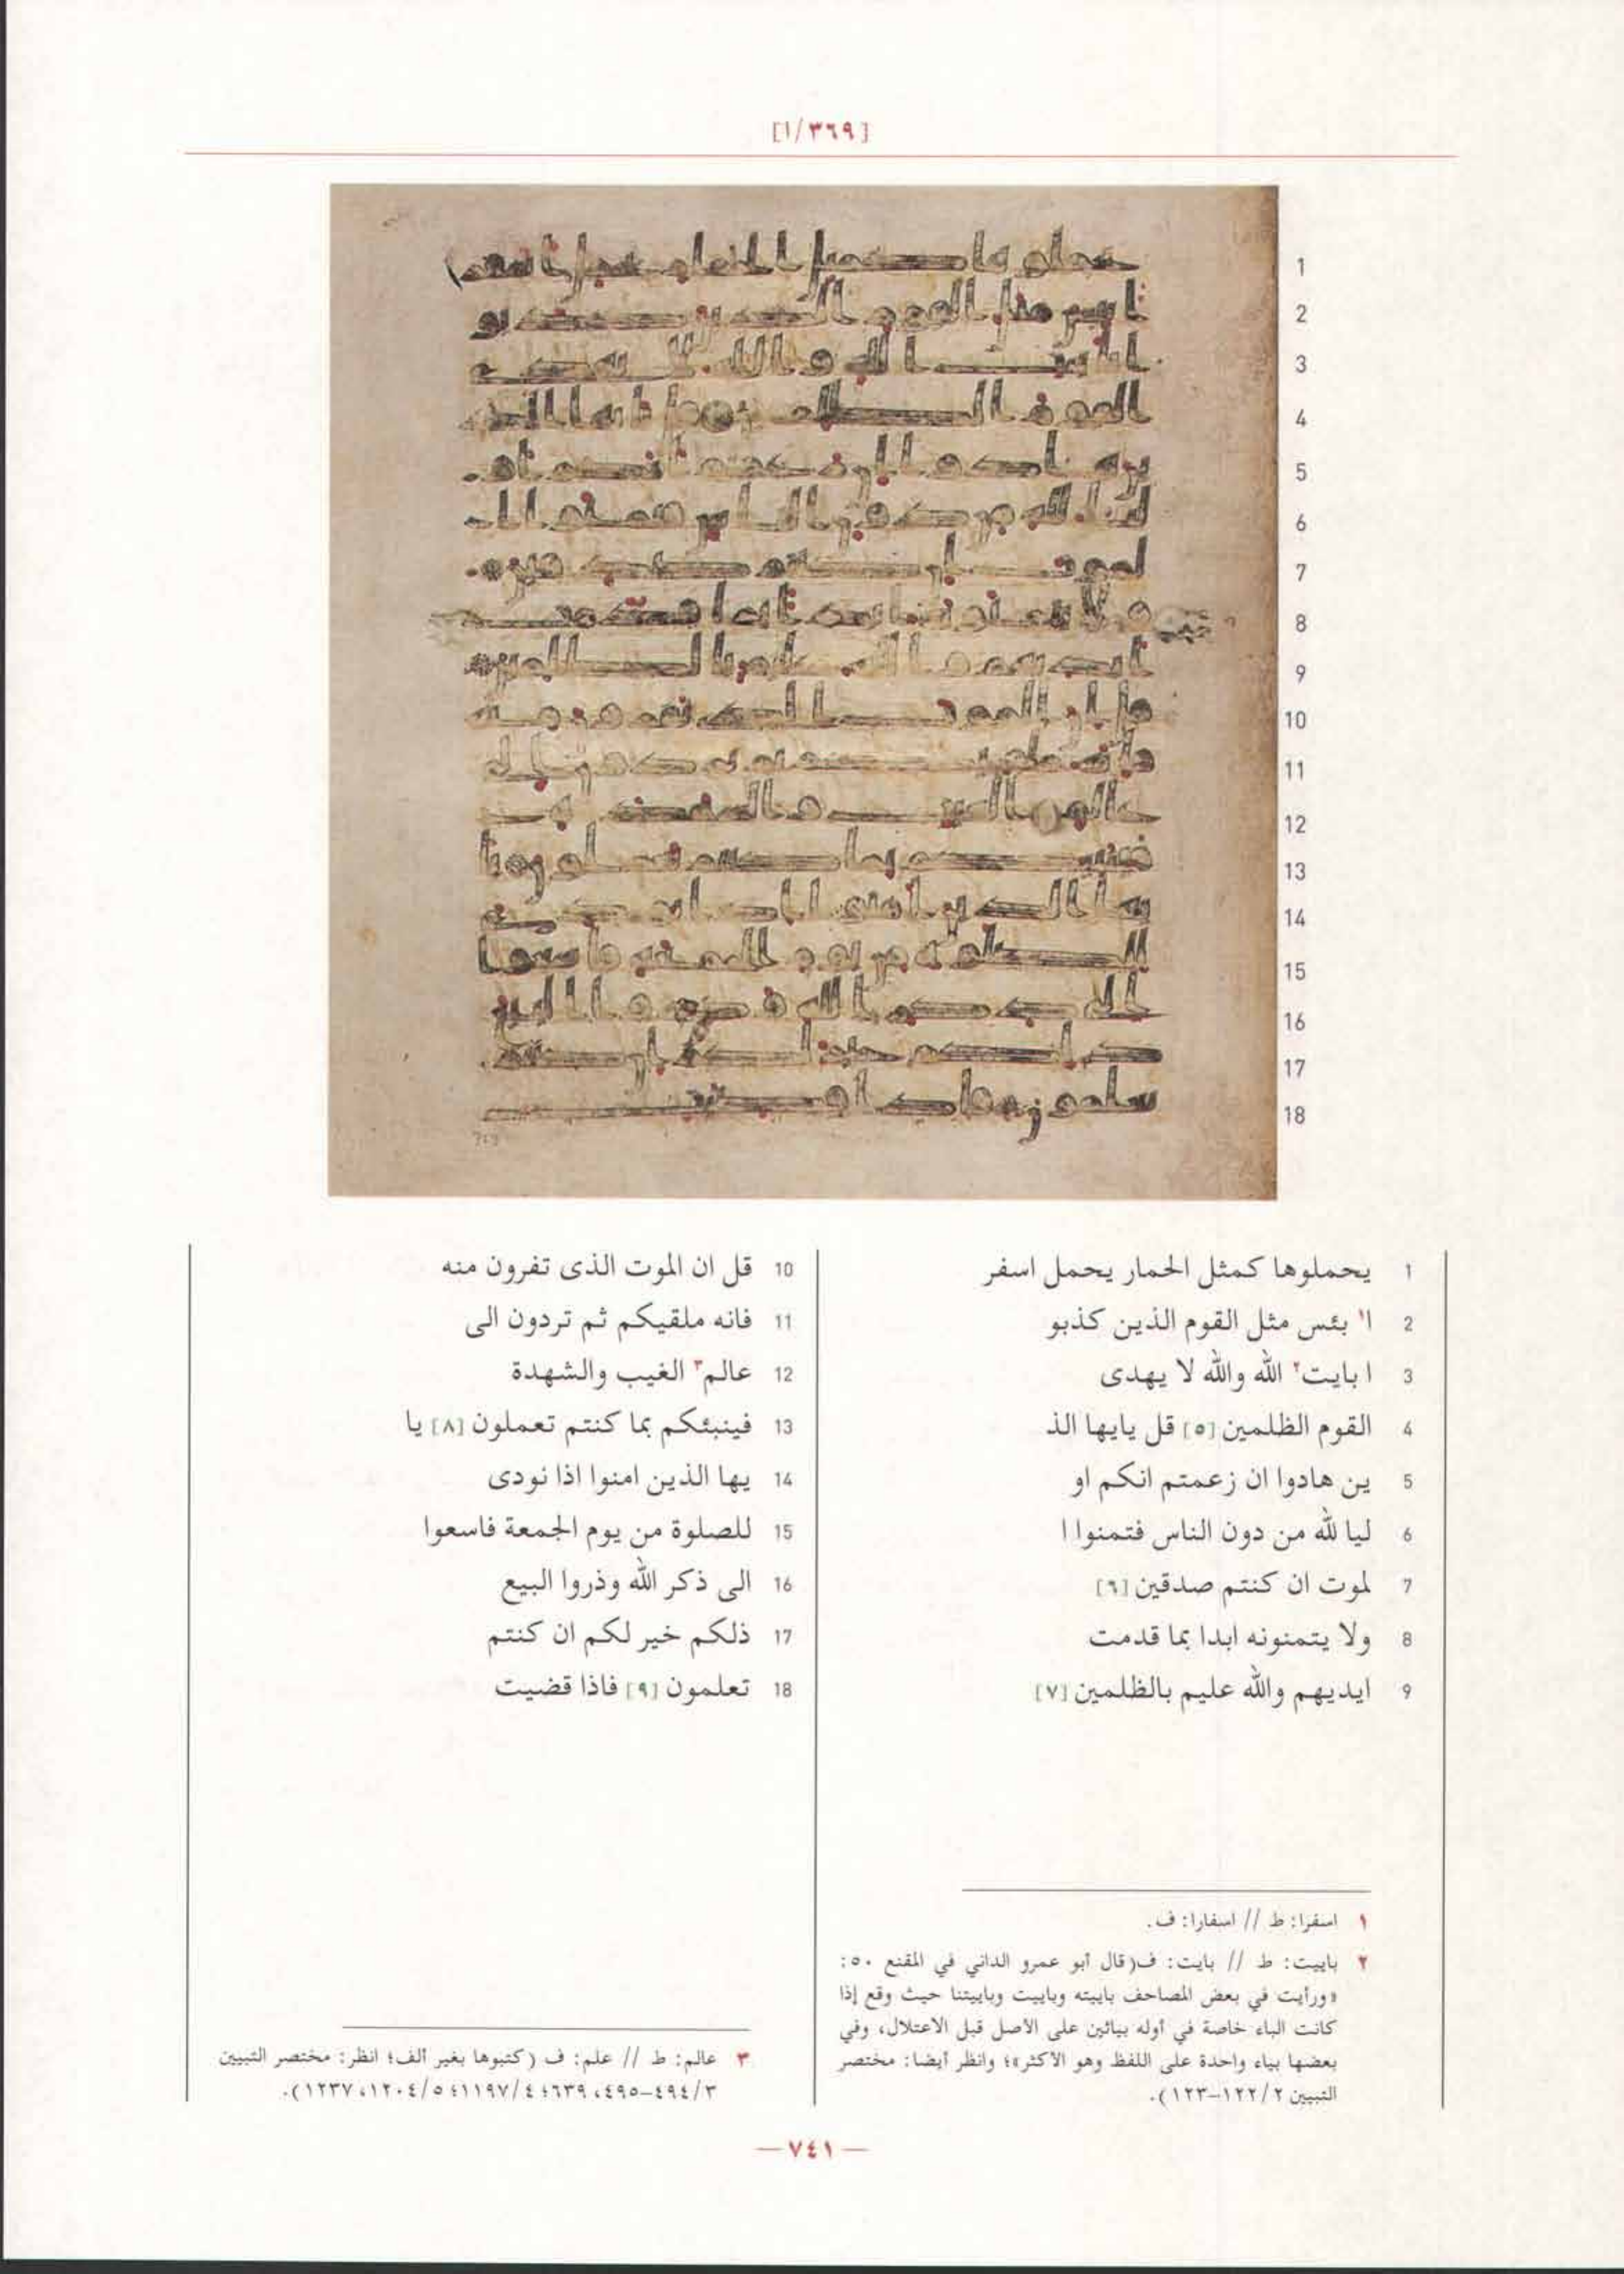 [٣٦٩/١]
1
2
3
4
5
6
7
8
9
10
11
12
13
14
15
16
17
18
1 يحملوها كمثل الحمار يحمل اسفر
2 ا١ بئس مثل القوم الذين كذبو
3 ا بايت٢ الله والله لا يهدى
4 القوم الظلمين [٥] قل يايها الذ
5 ين هادوا ان زعمتم انكم او
6 ليا لله من دون الناس فتمنوا ا
7 لموت ان كنتم صدقين [٦]
8 ولا يتمنونه ابدا بما قدمت
9 ايديهم والله عليم بالظلمين [٧]
10 قل ان الموت الذى تفرون منه
11 فانه ملقيكم ثم تردون الى
12 عالم٣ الغيب والشهدة
13 فينبئكم بما كنتم تعملون [٨] يا
14 يها الذين امنوا اذا نودى
15 للصلوة من يوم الجمعة فاسعوا
16 الى ذكر الله وذروا البيع
17 ذلكم خير لكم ان كنتم
18 تعلمون [٩] فاذا قضيت
١ اسفرا: ط // اسفارا: ف.
٢ باييت: ط // بايت: ف(قال أبو عمرو الداني في المقنع ٥٠:
«ورأيت في بعض المصاحف باييته وباييت وباييتنا حيث وقع إذا
كانت الباء خاصة في أوله بيائين على الأصل قبل الاعتلال، وفي
بعضها بياء واحدة على اللفظ وهو الأكثر»؛ وانظر أيضا: مختصر
التبيين ١٢٢/٢-١٢٣).
٣ عالم: ط // علم: ف (كتبوها بغير ألف؛ انظر: مختصر التبيين
٤٩٤/٣-٤٩٥، ٦٣٩؛ ١١٩٧/٤؛ ١٢٠٤/٥، ١٢٣٧).
— ٧٤١ —